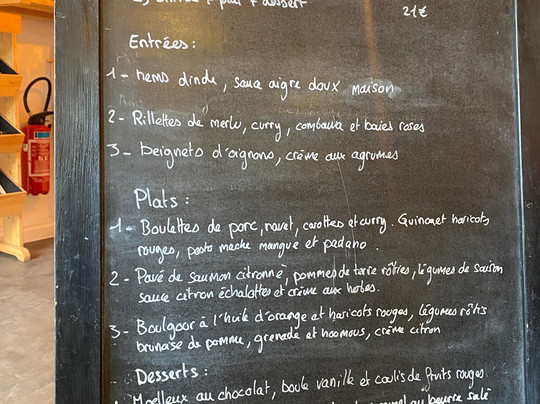 + plat + dessert
21€
Entrées :
1 - nems dinde, sauce aigre doux maison
2 - Rillettes de merlu, curry, combawa et baies roses
3 - beignets d'oignons, crème aux agrumes
Plats :
1 - Boulettes de porc, navet, carottes et curry. Quinoa et haricots
rouges, pesto mache mangue et padano.
2 - Pavé de saumon citronné, pommes de terre rôties, légumes de saison
sauce citron échalottes et crème aux herbes.
3 - Boulgour à l'huile d'orange et haricots rouges, légumes rôtis
brunoise de pomme, grenade et hoomous, crème citron
Desserts :
1 - Moelleux au chocolat, boule vanille et coulis de fruits rouges
au beurre salé